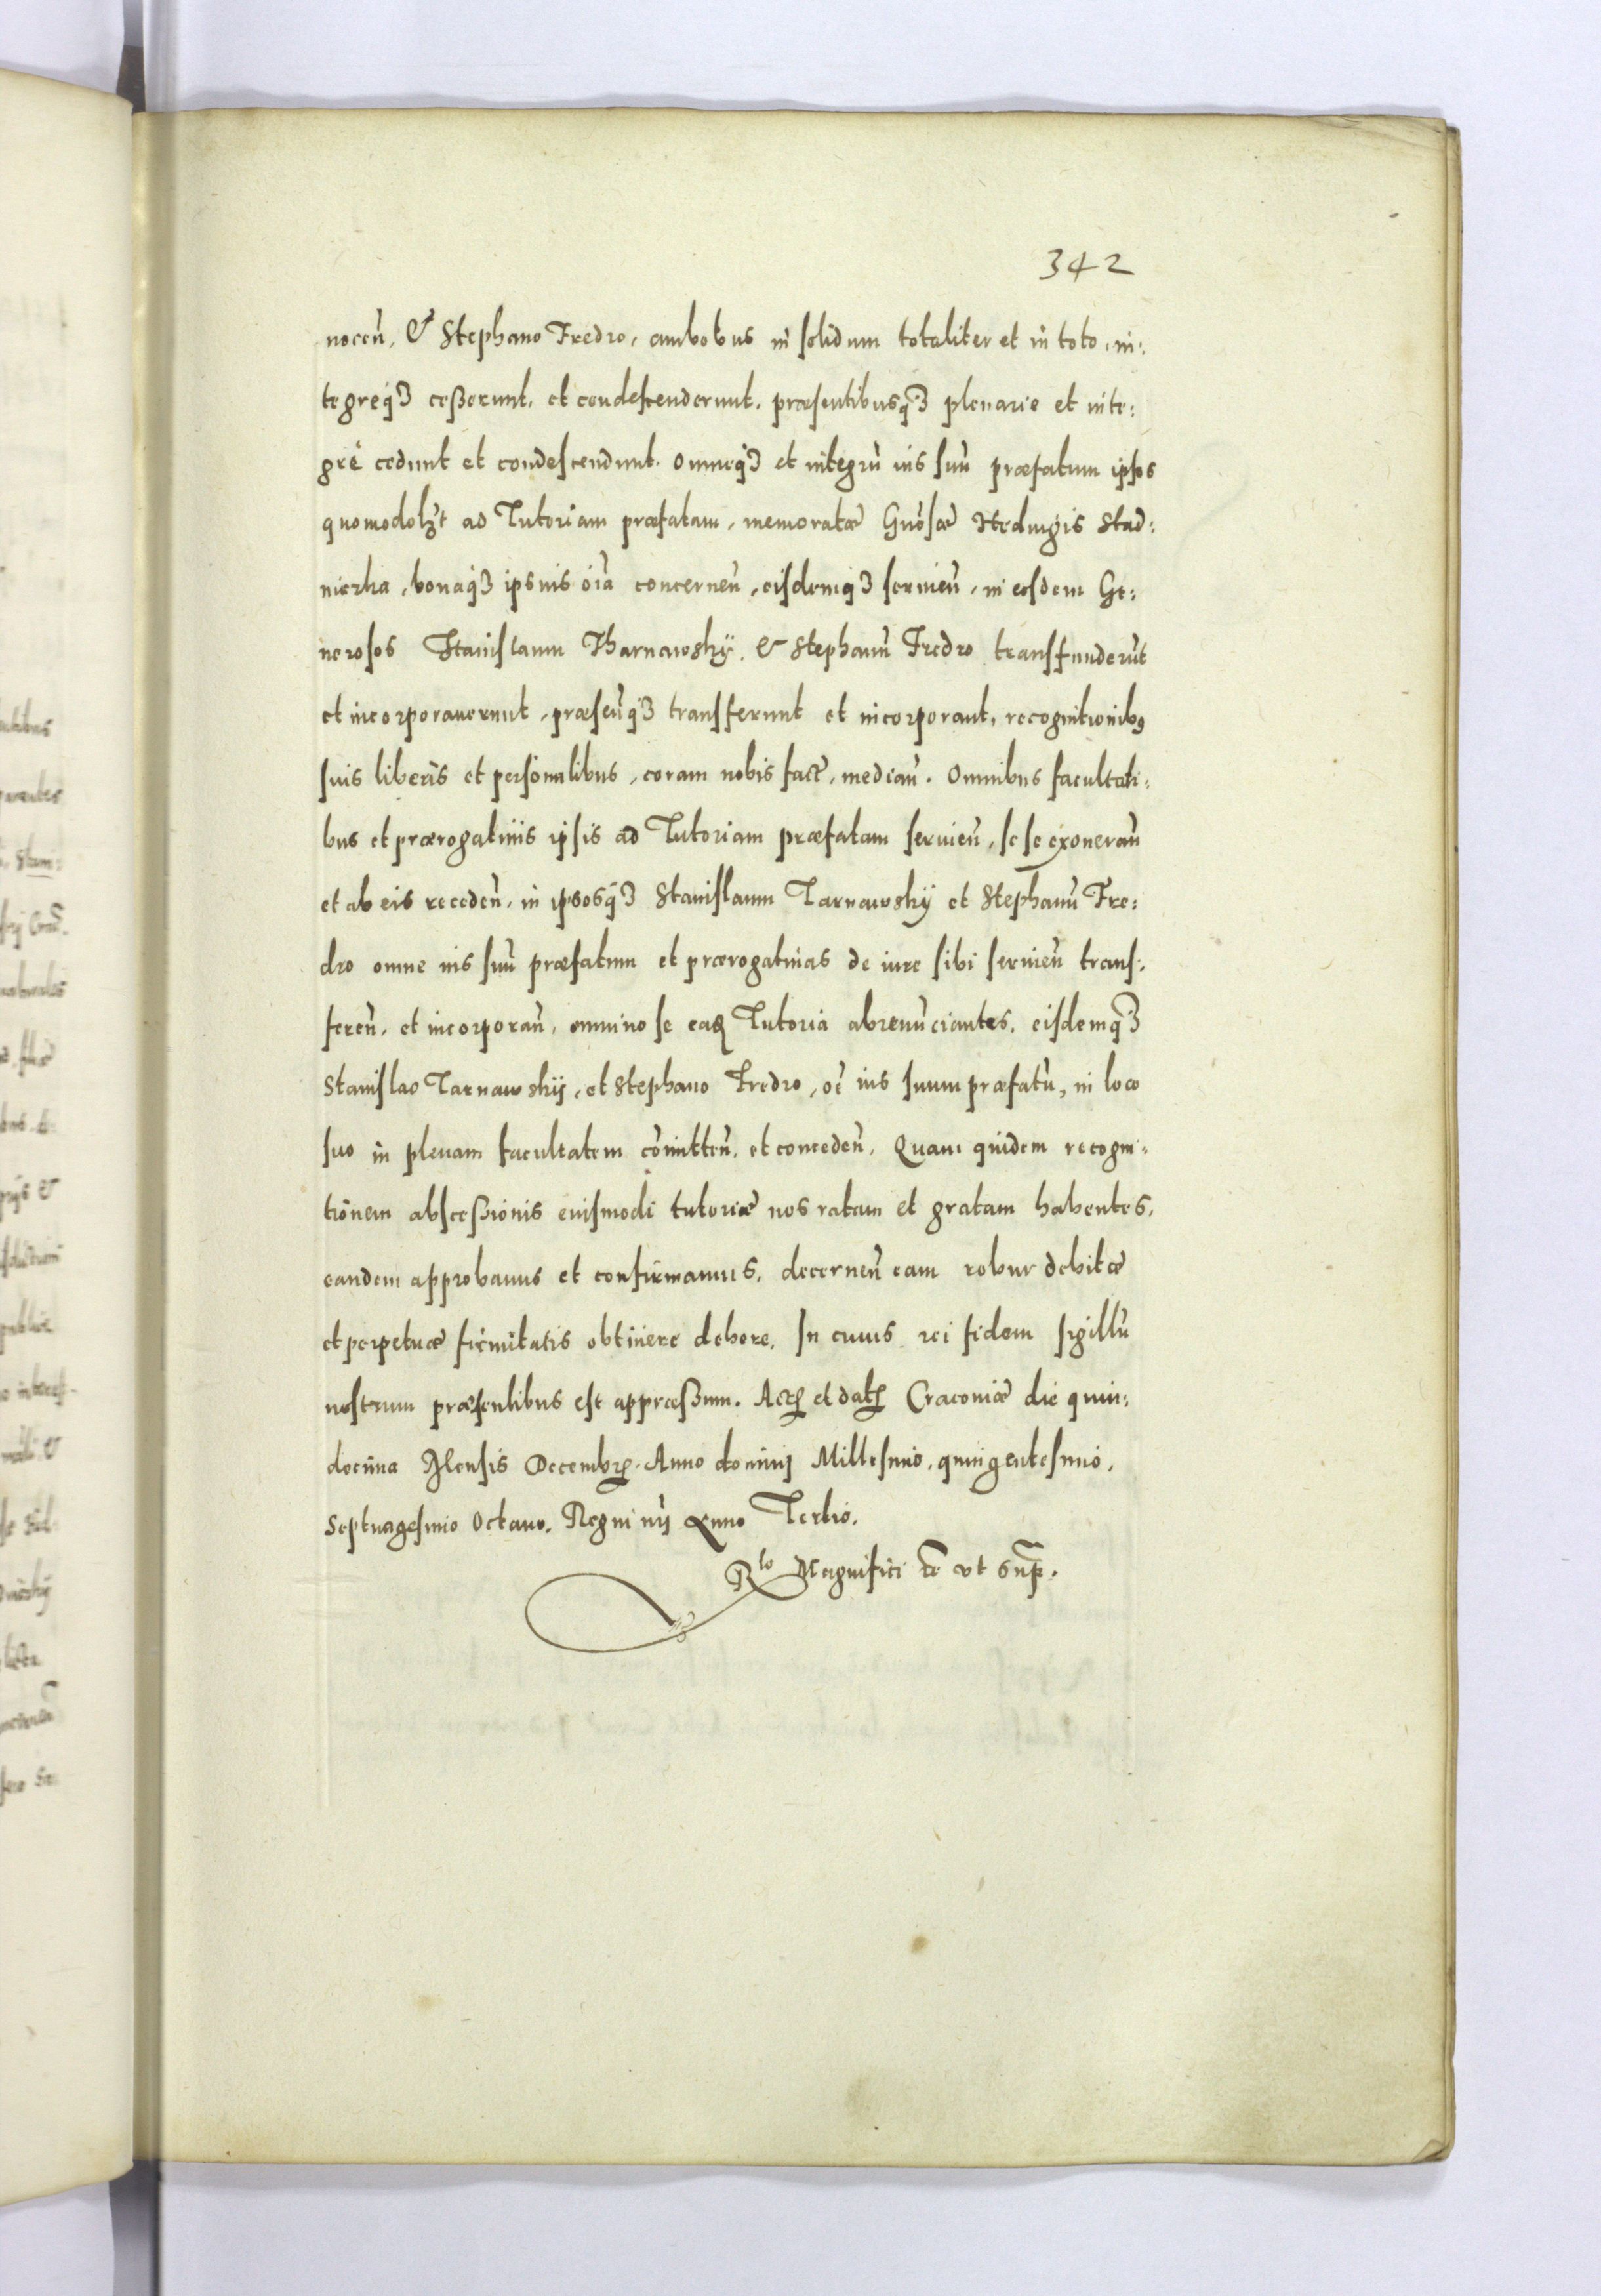 342
nocen̄, & Stephano Fredro, ambobus in solidum totaliter et in toto, in:
tegreqȝ cesserunt, et condescenderunt, præsentibusqȝ plenarie et inte:
grè cedunt et condescendunt. Omneqȝ et integrū ius suū præfatum ipsos
quomodolȝt ad Tutoriam præfatam, memoratæ Gn̄osæ Hedvigis Stad:
niczka, bonaqȝ ipsius oīa concernen̄, eisdemqȝ servien̄, in eosdem Ge:
nerosos Stanislaum Tharnawskÿ, & Stephanū Fredro transfunderūt
et incorporaverunt, præsen̄qȝ transferunt et incorporant, recognitionibꝯ
suis liberis et personalibus, coram nobis fact̄, median̄. Omnibus facultati:
bus et prærogativis ipsis ad Tutoriam præfatam servien̄, se se exoneran̄
et ab eis receden̄, in ipsosqȝ Stanislaum Tarnawskÿ et Stephanū Fre:
dro omne ius suū præfatum et prærogativas de iure sibi servien̄ trans:
feren̄, et incorporan̄, omnino se eaqȝ Tutoria abrenūciantes, eisdemqȝ
Stanislao Tarnawskÿ, et Stephano Fredro, oē ius suum præfatū, in loco
suo in plenam facultatem cōmitten̄, et conceden̄, Quam quidem recogni:
tionem abscessionis eiusmodi tutoriæ nos ratam et gratam habentes,
eandem approbamus et confirmamus, decernen̄ eam robur debitæ
et perpetuæ firmitatis obtinere debere. In cuius rei fidem sigillū
nostrum præsentibus est appressum. Actꝭ et datꝭ Cracoviæ die quin:
decima Mensis Decembrꝭ. Anno domini Millesimo, quingentesimo,
Septuagesimo Octavo. Regni nr̄i Anno Tertio.
Rlo Magnifici &c ut supꝭ.